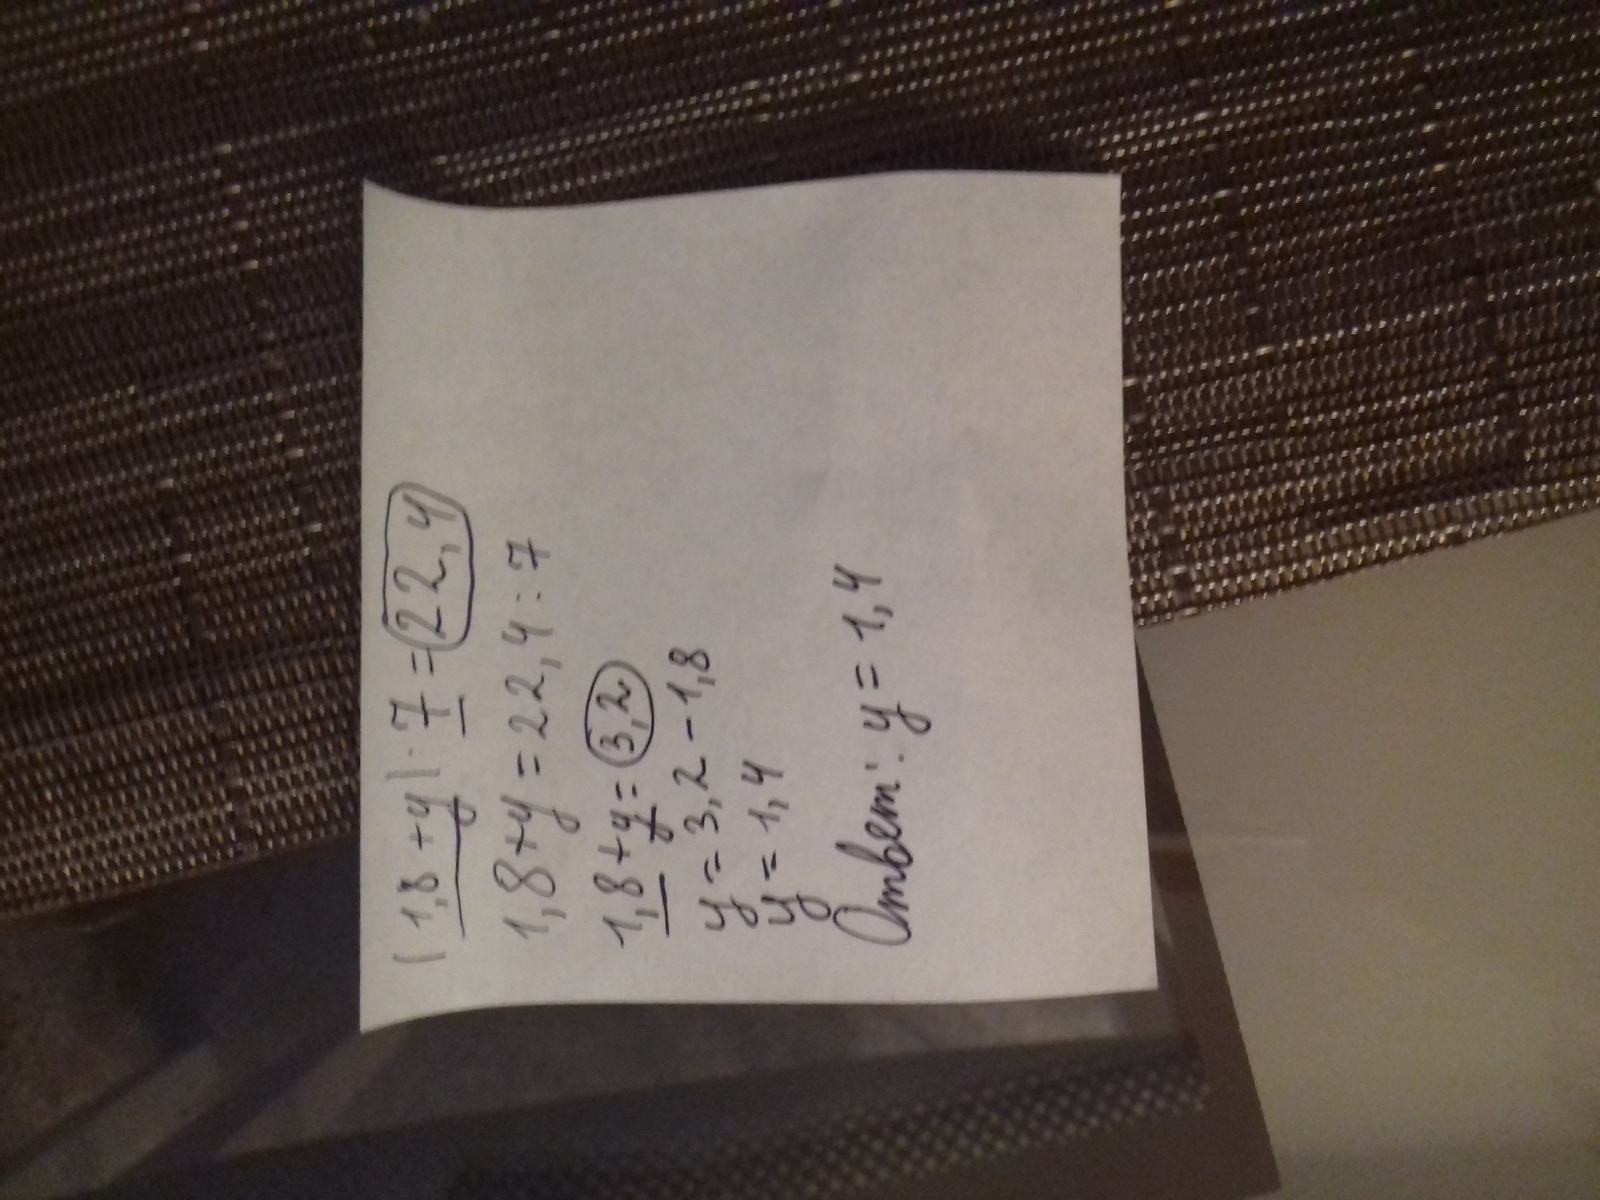 (1,8+y)·7=22,4
1,8+y=22,4:7
1,8+y=3,2
y=3,2-1,8
y=1,4
Ответ: y=1,4